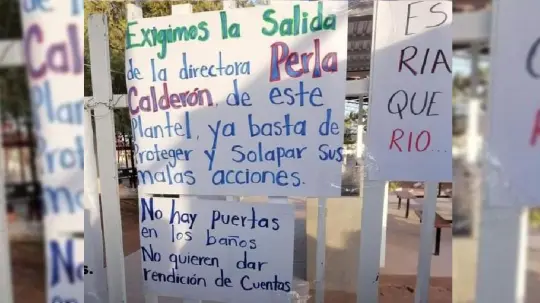 Exigimos la Salida
de la directora Perla
Calderón, de este
Plantel, ya basta de
Proteger y Solapar sus
malas acciones.
No hay puertas
en los baños
No quieren dar
rendición de Cuentas
ES
RIA
QUE
RIO...